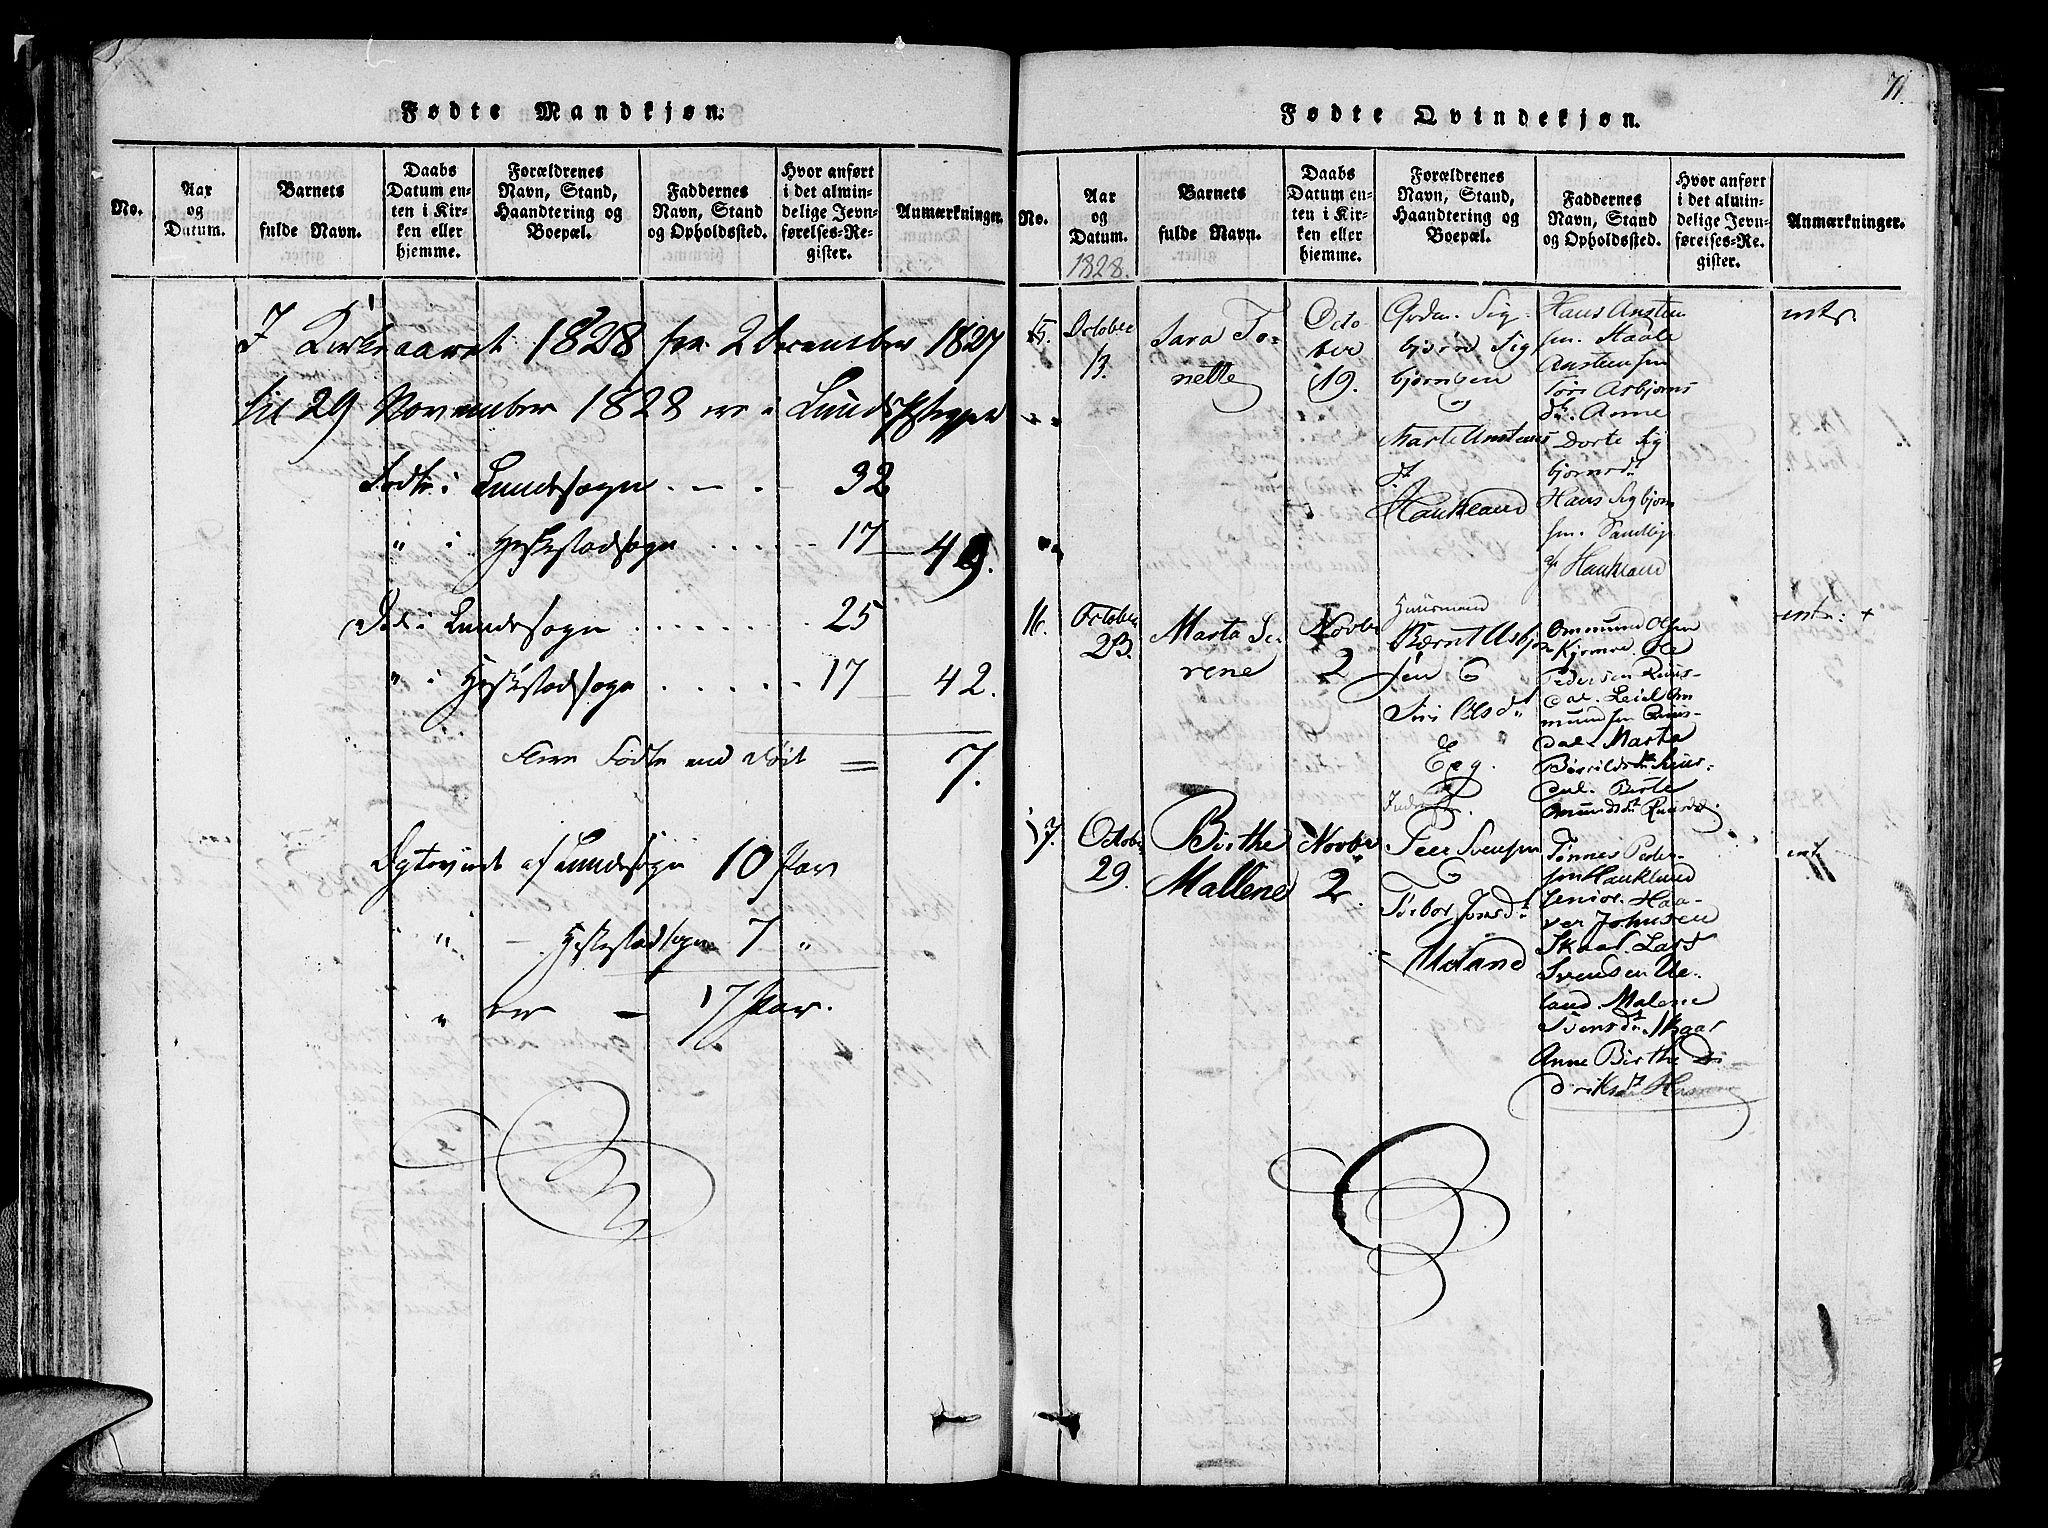 Fødte Mandkjøn.
No.
Aar
og
Datum.
Barnets
fulde Navn.
Daabs
Datum en-
ten i Kir-
ken eller
hjemme.
Forældrenes
Navn, Stand,
Haandtering og
Boepæl.
Faddernes
Navn, Stand
og Opholdssted.
Hvor anført
i det almin-
delige Jevn-
førelses-Re-
gister.
Anmærkninger.
I Kirkeaaret 1828 fra 2 December 1827
til 29 November 1828 ere i Lunds
Fødte i Lundesogn 32
" i Heskestadsogn 17 49.
Død i Lundesogn 25
" i Heskestadsogn 17 42.
Flere Fødte end Død = 7.
Egteviet af Lundesogn 10 Par
" Heskestadsogn 7 "
" 17 Par.
71.
Fødte Qvindekjøn.
No.
Aar
og
Datum.
1828.
Barnets
fulde Navn.
Daabs
Datum en-
ten i Kir-
ken eller
hjemme.
Forældrenes
Navn, Stand,
Haandtering og
Boepæl.
Faddernes
Navn, Stand
og Opholdssted.
Hvor anført
i det almin-
delige Jevn-
førelses-Re-
gister.
Anmærkninger.
15.
October
13.
Sara To-
nette
Octo
ber
19.
Grdm. Sig-
bjørn Sig
bjørnsen
og
Marte Anstens
dt
Haukland
Hans Ansten
sen.
Anstensen
Asbjørns
dt. Anne
Dorte Sig
bjornsdt
Hans Sigbjørn
sen.
af Haukland
intr.
16.
October
23.
Marta Se-
rene
Novbr
2
Huusmand
Bernt Asbjør
sen &
Siri Olsdt
Eeg.
Ommund Olsen
Kjørmoe. Ole
Pedersen Ruus-
dal. Om
mundsen Ruus-
dal. Marta
Ruus-
dal. Berte
Omundsdt Ruusdal.
intr: +
17.
Octobr
29.
Birthe
Mallene
Novbr
2.
Peer Svensen
&
Torbor Jonsdt
Ueland
Tønnes Peder-
sen Haukland
senior. Haa-
ver Johnsen
Skaar. Lars
Svensen Ue-
land. Malene
Svensdt. Skaar
Anne Birthe Di-
driksdt
int.